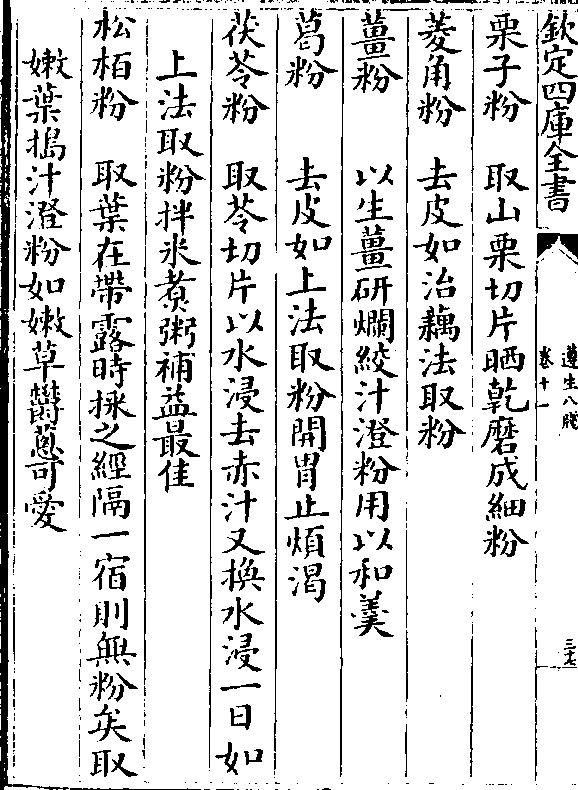 欽定四庫全書
遵生八牋
卷十一
三十七
栗子粉　取山栗切片晒乾磨成細粉
菱角粉　去皮如治藕法取粉
薑粉　以生薑研爛絞汁澄粉用以和羹
葛粉　去皮如上法取粉開胃止煩渴
茯苓粉　取苓切片以水浸去赤汁又換水浸一日如
上法取粉拌米煑粥補益最佳
松栢粉　取葉在帶露時採之經隔一宿則無粉矣取
嫩葉搗汁澄粉如嫩草鬱葱可愛